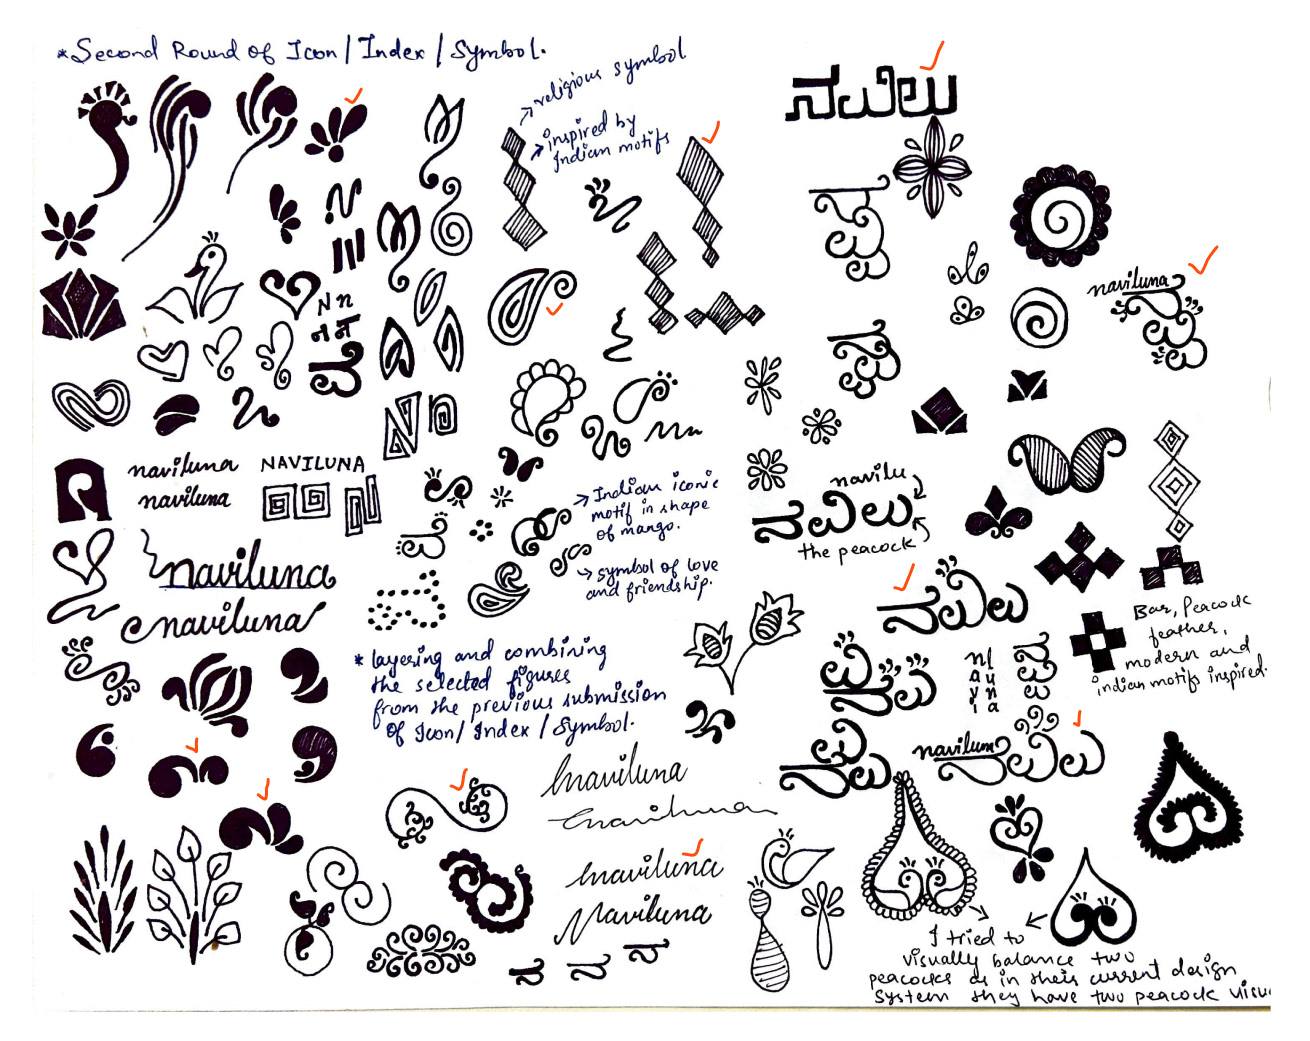 *Second Round of Icon/Index/Symbol.
religious symbol
inspired by
Indian motifs
ನವಿಲು
naviluna
N n
न
naviluna NAVILUNA
naviluna
naviluna
naviluna
Indian iconic
motif in shape
of mango.
symbol of love
and friendship.
navilu
ನವಿಲು
the peacock
ನವಿಲು
* layering and combining
the selected figures
from the previous submission
of Icon/Index/Symbol.
Bar, Peacock
feather,
modern and
indian motifs inspired.
naviluna
naviluna
naviluna
naviluna
Naviluna
ನ ನ ನ
I tried to
visually balance two
peacocks as in their current design
system they have two peacock visu